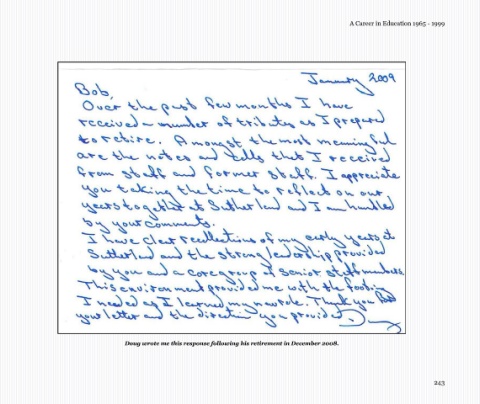 A Career in Education 1965 - 1999
January 2009
Bob,
Over the past few months I have
received a number of tributes as I prepared
to retire. Amongst the most meaningful
are the notes and calls that I received
from staff and former staff. I appreciate
you taking the time to reflect on our
years together at Sutherland and I am humbled
by your comments.
I have clear recollections of my early years at
Sutherland and the strong leadership provided
by you and a core group of senior staff members.
This environment provided me with the footing
I needed as I learned my new role. Thank you for
your letter and the direction you provided. Doug
Doug wrote me this response following his retirement in December 2008.
243